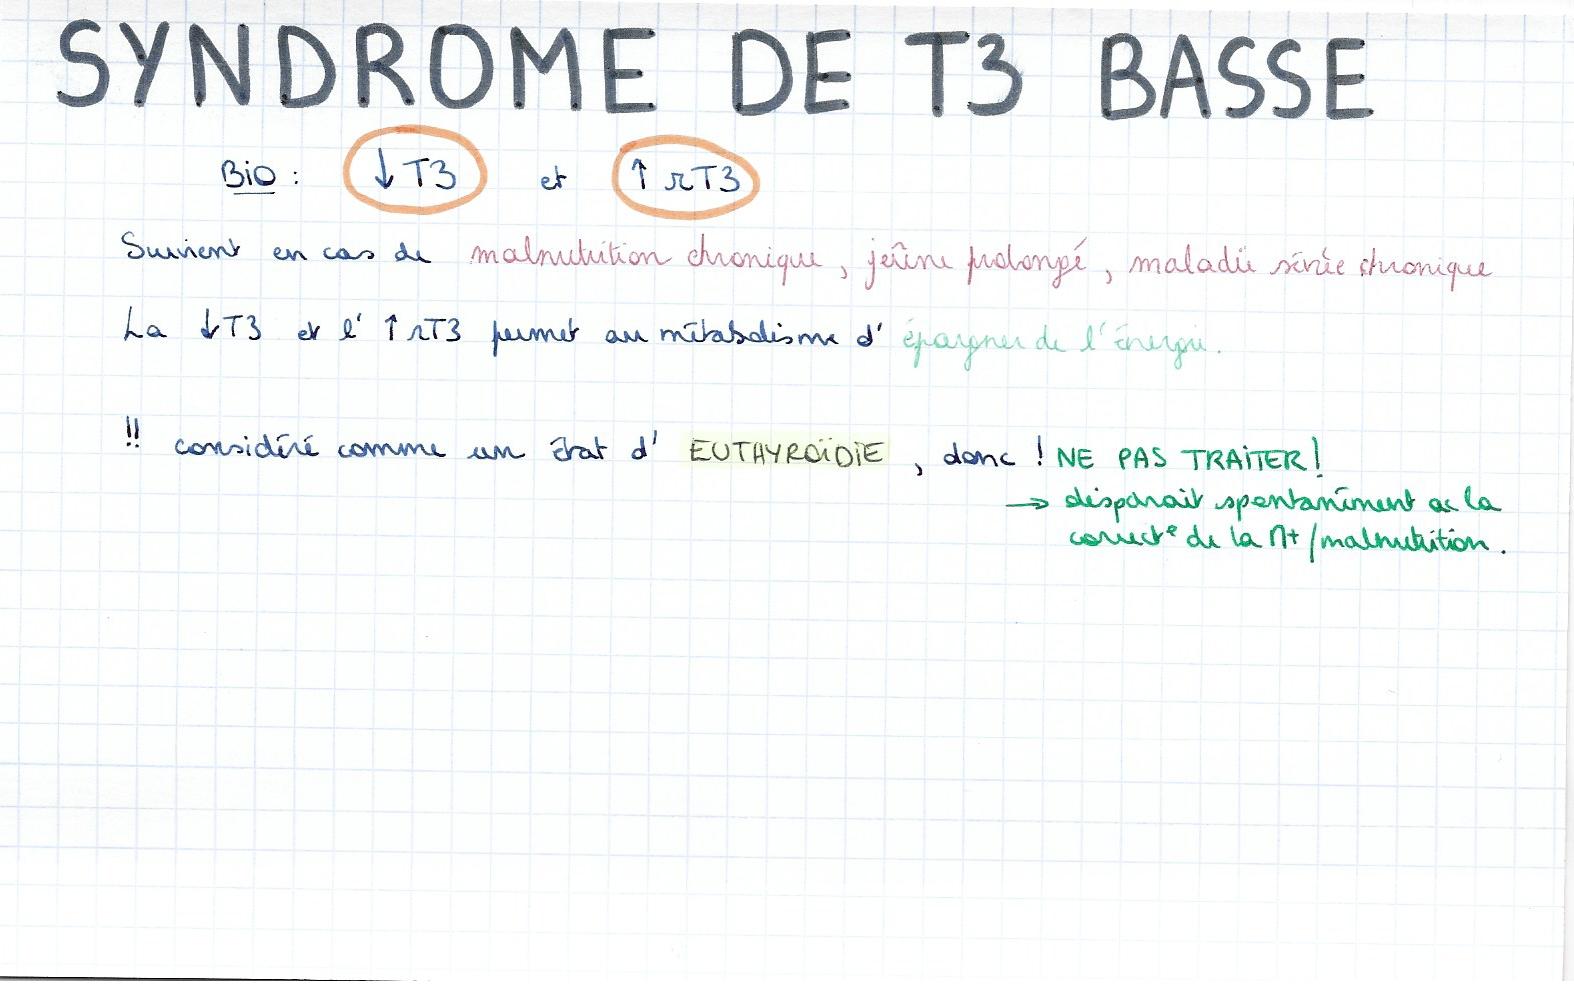 SYNDROME DE T3 BASSE
BiO : ↓ T3 et ↑ rT3
Survient en cas de malnutrition chronique, jeûne prolongé, maladie sévère chronique
La ↓T3 et l' ↑ rT3 permet au métabolisme d' épargner de l'énergie.
!! considéré comme un état d' EUTHYROÏDIE, donc ! NE PAS TRAiTER!
→ disparait spontanément ac la
correct° de la π+/malnutrition.